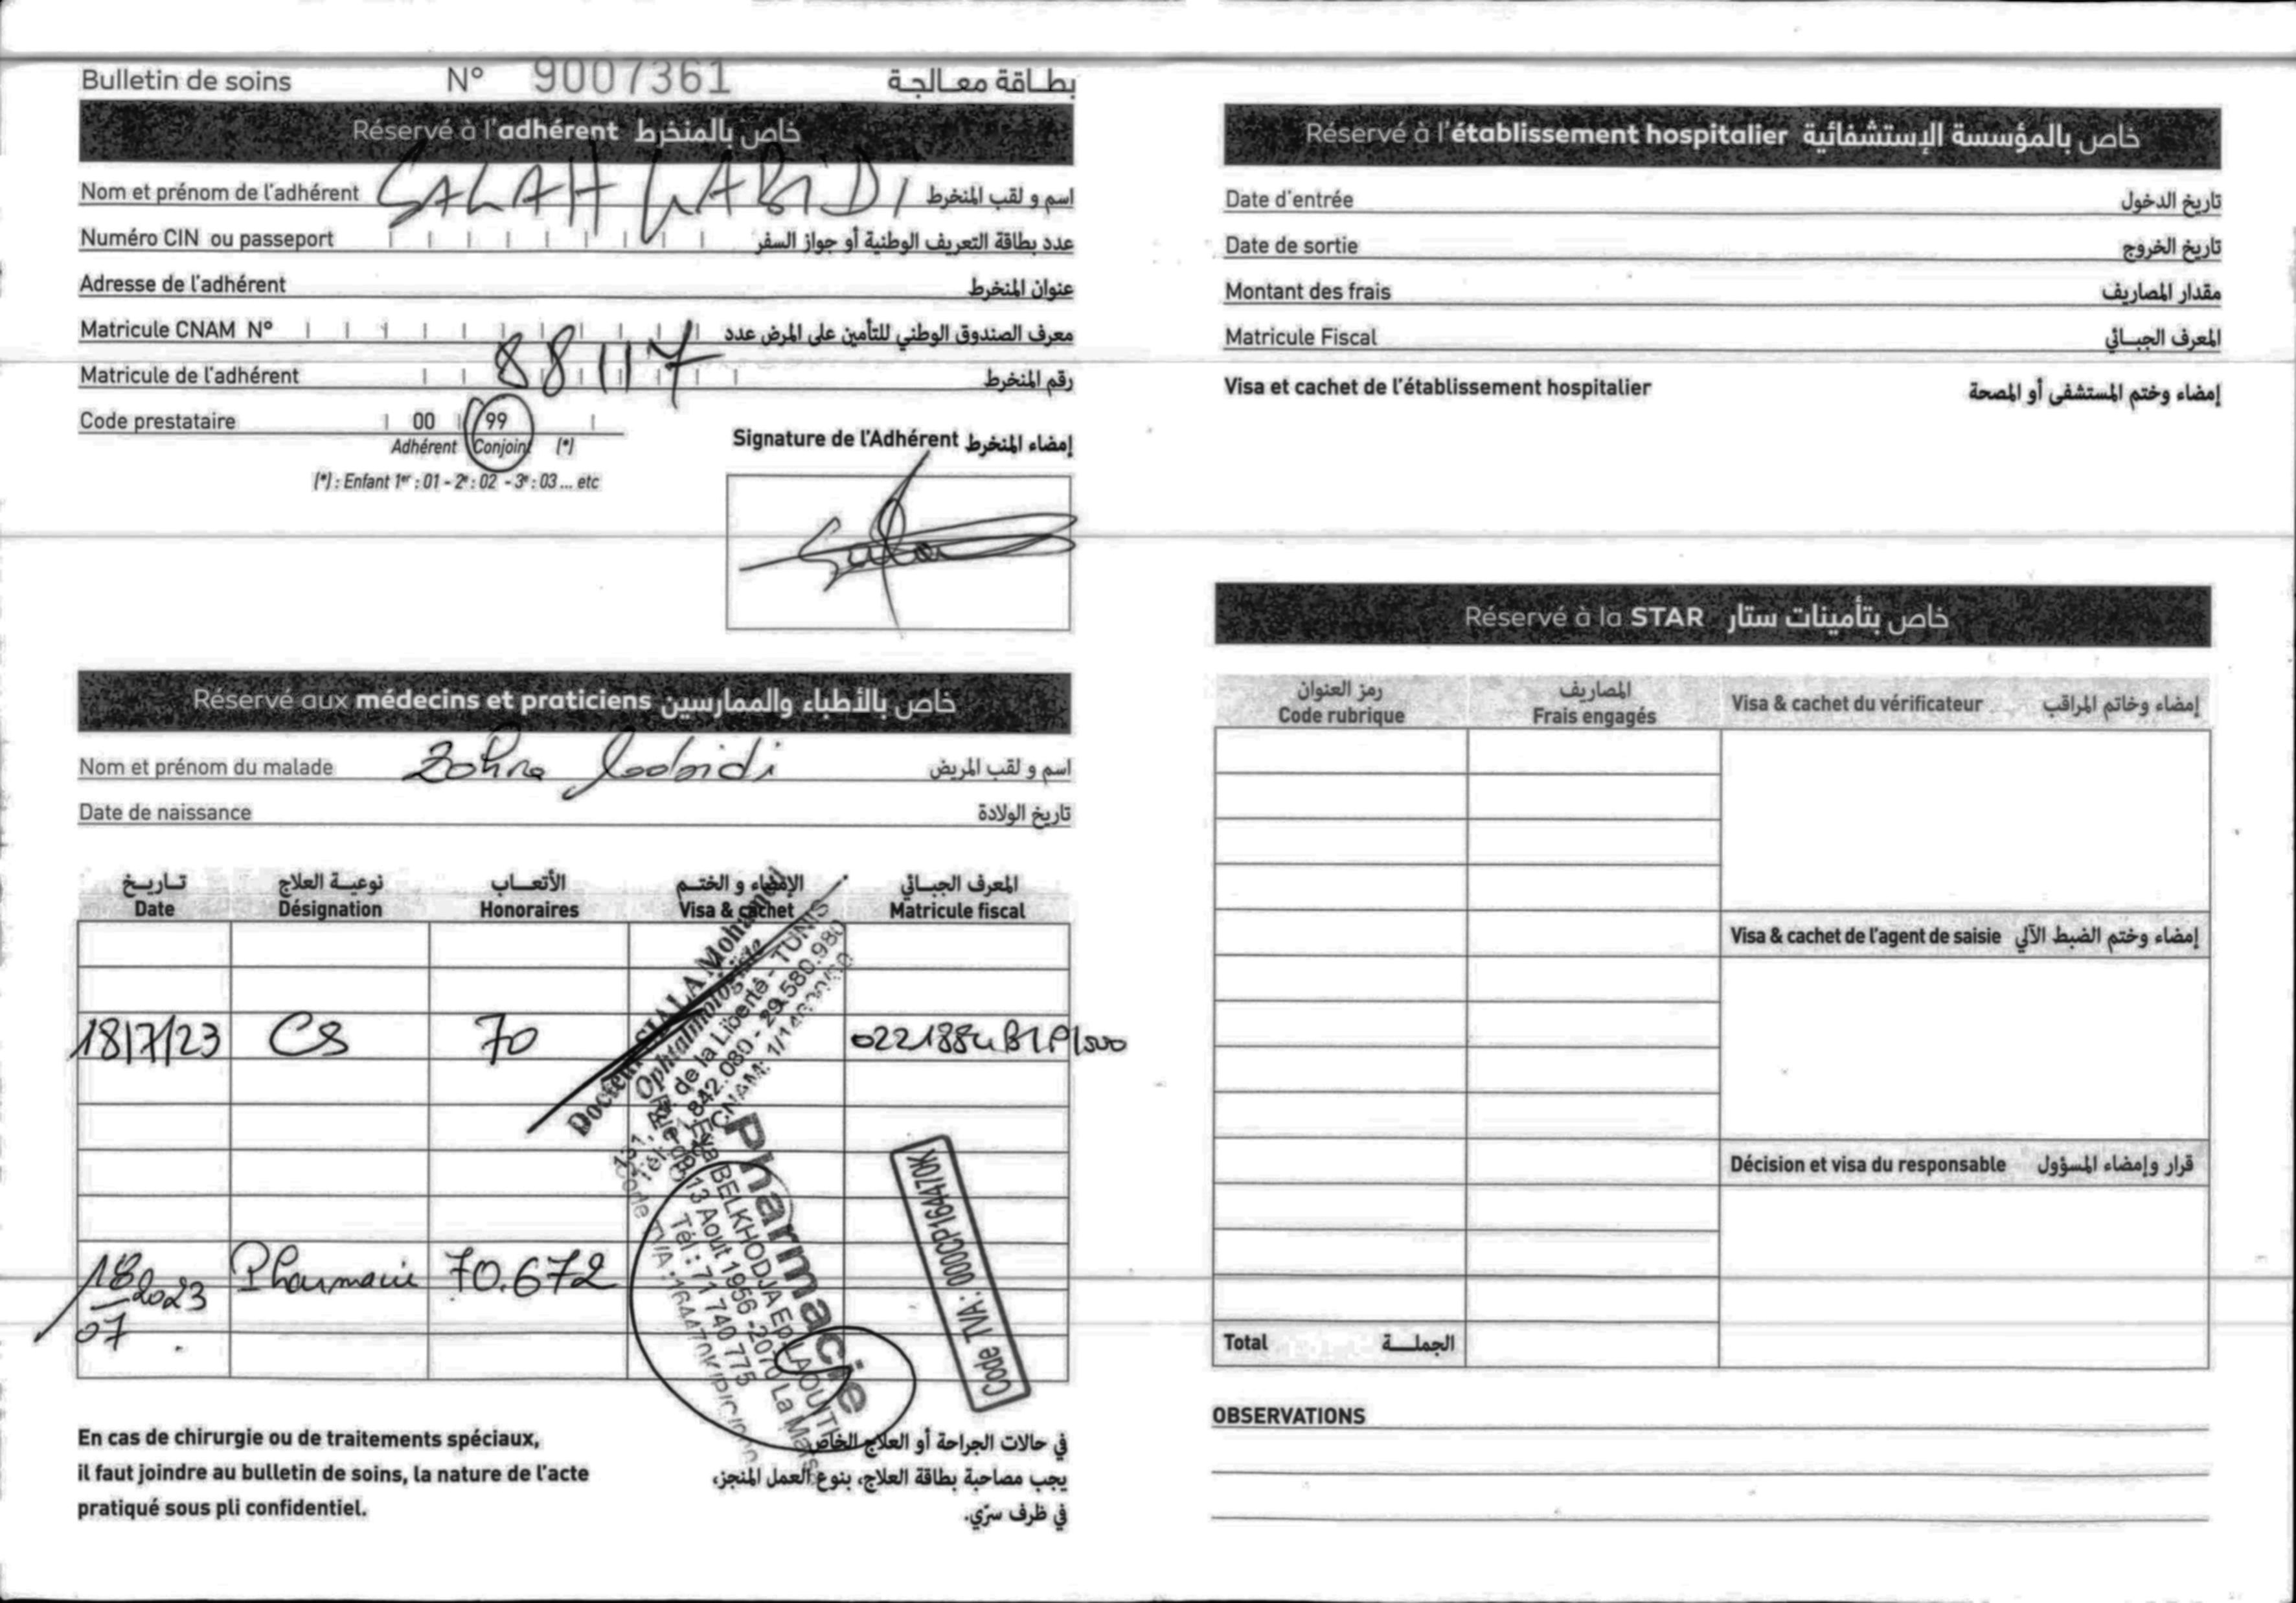 Bulletin de soins N° 9007361 بطاقة معالجة
Réservé à l'adhérent خاص بالمنخرط
Nom et prénom de l'adhérent SALAH LABIDI اسم و لقب المنخرط
Numéro CIN ou passeport عدد بطاقة التعريف الوطنية أو جواز السفر
Adresse de l'adhérent عنوان المنخرط
Matricule CNAM N° معرف الصندوق الوطني للتأمين على المرض عدد
Matricule de l'adhérent 88117 رقم المنخرط
Code prestataire 00 99
Adhérent Conjoint (*)
(*) : Enfant 1er : 01 - 2e : 02 - 3e : 03 ... etc
Signature de l'Adhérent إمضاء المنخرط
Réservé aux médecins et praticiens خاص بالأطباء والممارسين
Nom et prénom du malade Zohra Labidi اسم و لقب المريض
Date de naissance تاريخ الولادة
تـاريـخ نوعيـة العلاج الأتعـاب الإمضاء و الختـم المعرف الجبـائي
Date Désignation Honoraires Visa & cachet Matricule fiscal
18/7/23 CS 70
Docteur Mohamed
Ophtalmologiste
Av. de la Liberté - TUNIS
842.080 - 29.580.980
18/07/2023 Pharmacie 70.672
Pharmacie
BELKHODJA Ep LAOUITI
Rue du 13 Aout 1956 - 2070 La Marsa
Tél : 71 740 775
Code TVA: 000CP164470K
En cas de chirurgie ou de traitements spéciaux,
il faut joindre au bulletin de soins, la nature de l'acte
pratiqué sous pli confidentiel.
في حالات الجراحة أو العلاج الخاص
يجب مصاحبة بطاقة العلاج، بنوع العمل المنجز،
في ظرف سرّي.
Réservé à l'établissement hospitalier خاص بالمؤسسة الإستشفائية
Date d'entrée تاريخ الدخول
Date de sortie تاريخ الخروج
Montant des frais مقدار المصاريف
Matricule Fiscal المعرف الجبـائي
Visa et cachet de l'établissement hospitalier إمضاء وختم المستشفى أو المصحة
Réservé à la STAR خاص بتأمينات ستار
رمز العنوان المصاريف
Code rubrique Frais engagés Visa & cachet du vérificateur إمضاء وخاتم المراقب
Visa & cachet de l'agent de saisie إمضاء وختم الضبط الآلي
Décision et visa du responsable قرار وإمضاء المسؤول
Total الجملـة
OBSERVATIONS